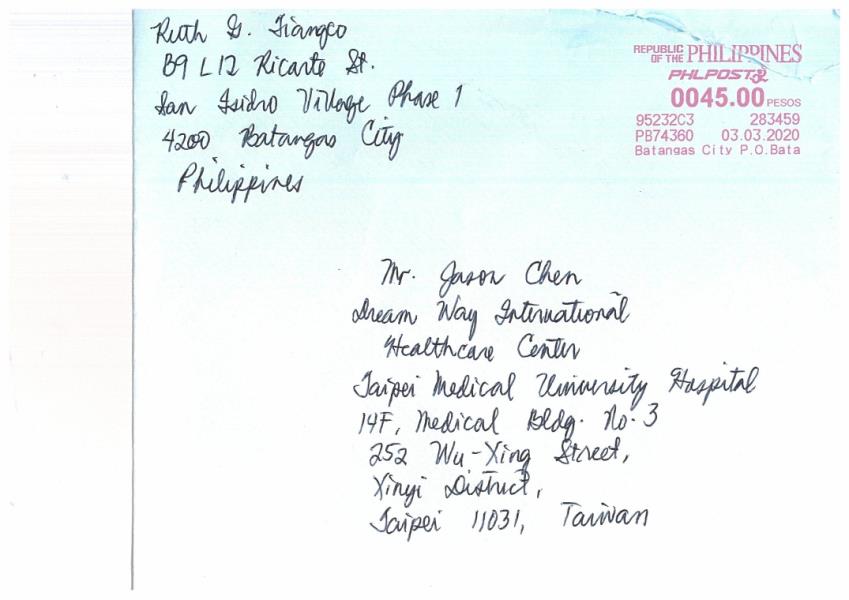 Ruth G. Tiangco
B9 L12 Ricarte St.
San Isidro Village Phase 1
4200 Batangas City
Philippines
REPUBLIC OF THE PHILIPPINES
PHLPOST
0045.00 PESOS
95232C3 283459
PB74360 03.03.2020
Batangas City P.O.Bata
Mr. Jason Chen
Dream Way International
Healthcare Center
Taipei Medical University Hospital
14F, Medical Bldg. No. 3
252 Wu-Xing Street,
Xinyi District,
Taipei 11031, Taiwan